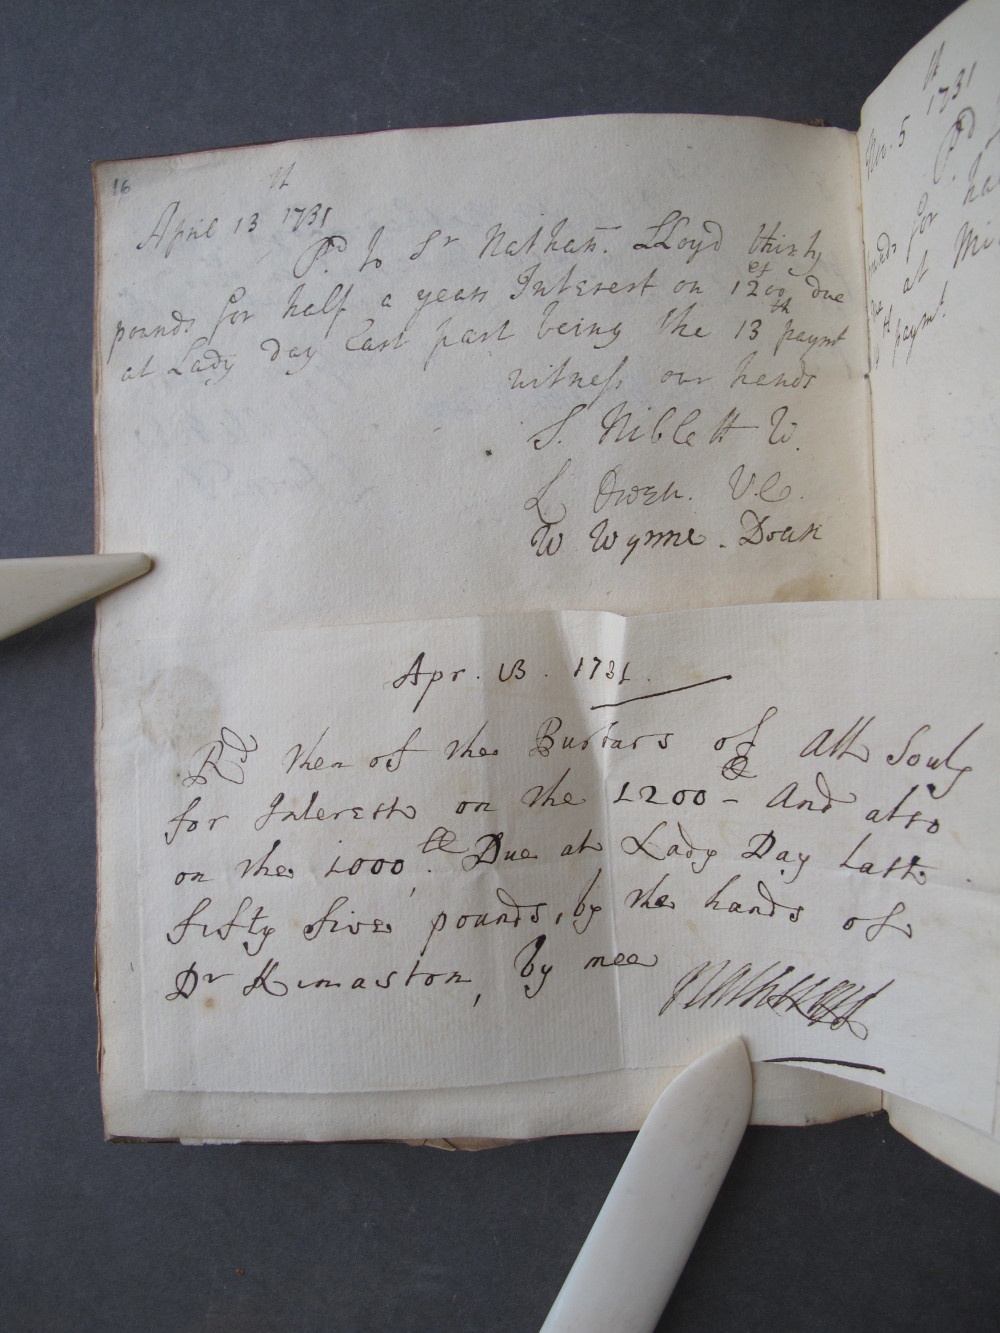 16
April 13th 1731
Pd to Sr Nathan. LLoyd thirty
pounds for half a years Interest on 1200 due
at Lady day last past being the 13th paymt
witness our hands
S. Niblett W.
L Owen. V.C.
W Wynne. Dean
Apr. 13. 1731.
Rd then of the Bursars of All Souls
for Interest on the 1200 - And also
on the 1000. Due at Lady Day last
fifty five pounds, by the hands of
Dr Kinaston, by mee
Nath Lloyd
Nov. 5th 1731
Pd
pounds for hal
due at Mi
paymt.